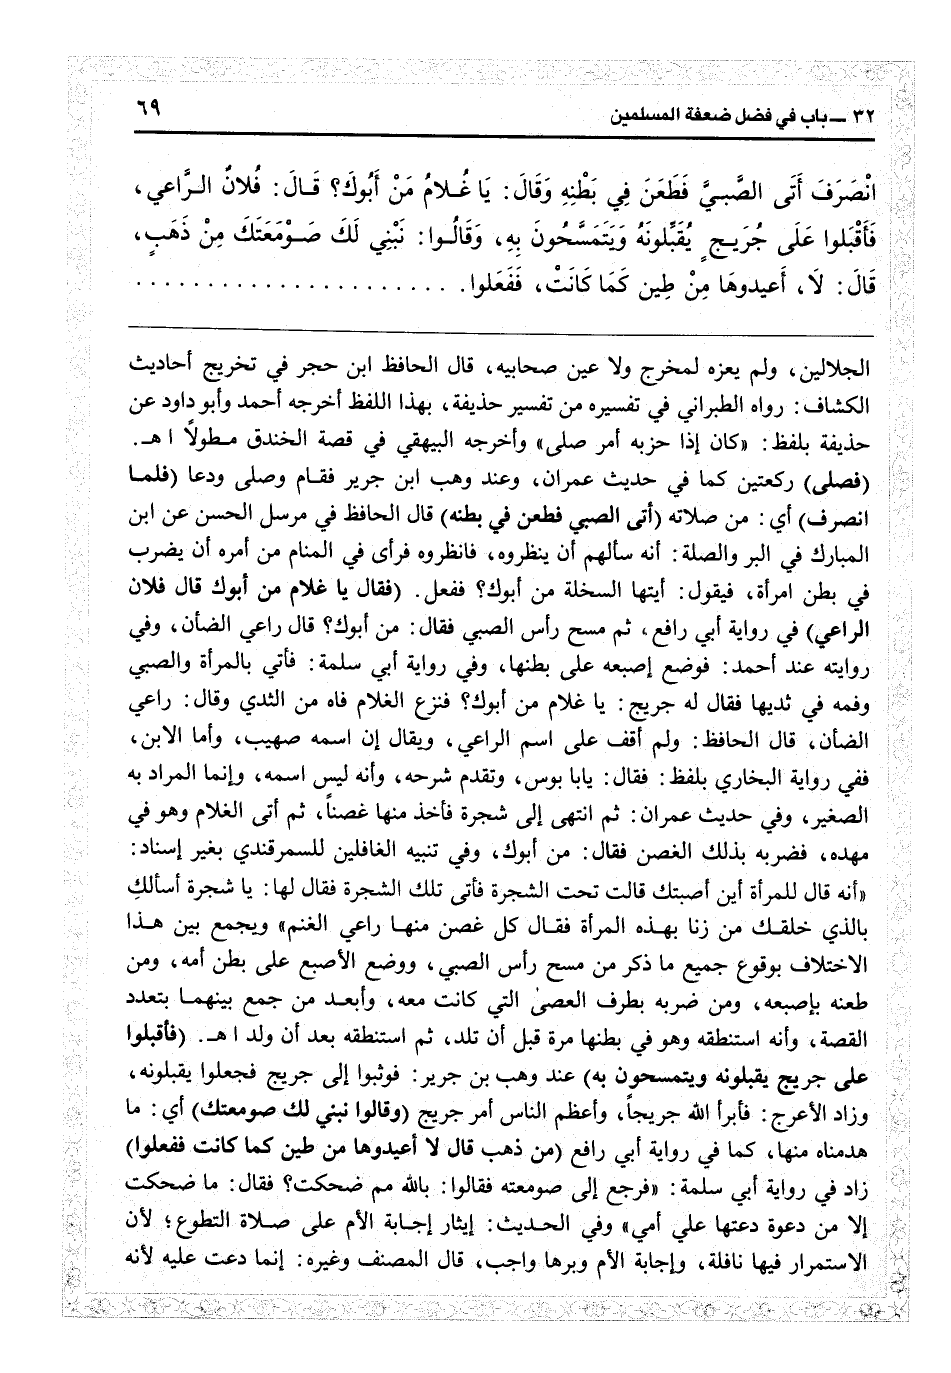 ٣٢ ــ باب في فضل ضعفة المسلمين
٦٩
انْصَرَفَ أَتَى الصَّبِيَّ فَطَعَنَ فِي بَطْنِهِ وَقَالَ: يَا غُلَامُ مَنْ أَبُوكَ؟ قَالَ: فُلانٌ الرَّاعي،
فَأَقْبَلوا عَلَى جُرَيجٍ يُقَبِّلونَهُ وَيَتَمَسَّحُونَ بِهِ، وَقَالُوا: نَبْنِي لَكَ صَوْمَعَتَكَ مِنْ ذَهَبٍ،
قَالَ: لَا، أَعيدوهَا مِنْ طِينٍ كَمَا كَانَتْ، فَفَعَلوا. . . . . . . . . . . . . . . . . . . . . . .
الجلالين، ولم يعزه لمخرج ولا عين صحابيه، قال الحافظ ابن حجر في تخريج أحاديث
الكشاف: رواه الطبراني في تفسيره من تفسير حذيفة، بهذا اللفظ أخرجه أحمد وأبو داود عن
حذيفة بلفظ: «كان إذا حزبه أمر صلى» وأخرجه البيهقي في قصة الخندق مطولاً ا هـ.
(فصلى) ركعتين كما في حديث عمران، وعند وهب ابن جرير فقام وصلى ودعا (فلما
انصرف) أي: من صلاته (أتى الصبي فطعن في بطنه) قال الحافظ في مرسل الحسن عن ابن
المبارك في البر والصلة: أنه سألهم أن ينظروه، فانظروه فرأى في المنام من أمره أن يضرب
في بطن امرأة، فيقول: أيتها السخلة من أبوك؟ ففعل. (فقال يا غلام من أبوك قال فلان
الراعي) في رواية أبي رافع، ثم مسح رأس الصبي فقال: من أبوك؟ قال راعي الضأن، وفي
روايته عند أحمد: فوضع إصبعه على بطنها، وفي رواية أبي سلمة: فأتي بالمرأة والصبي
وفمه في ثديها فقال له جريج: يا غلام من أبوك؟ فنزع الغلام فاه من الثدي وقال: راعي
الضأن، قال الحافظ: ولم أقف على اسم الراعي، ويقال إن اسمه صهيب، وأما الابن،
ففي رواية البخاري بلفظ: فقال: يابا بوس، وتقدم شرحه، وأنه ليس اسمه، وإنما المراد به
الصغير، وفي حديث عمران: ثم انتهى إلى شجرة فأخذ منها غصناً، ثم أتى الغلام وهو في
مهده، فضربه بذلك الغصن فقال: من أبوك، وفي تنبيه الغافلين للسمرقندي بغير إسناد:
«أنه قال للمرأة أين أصبتك قالت تحت الشجرة فأتى تلك الشجرة فقال لها: يا شجرة أسألكِ
بالذي خلقك من زنا بهذه المرأة فقال كل غصن منها راعي الغنم» ويجمع بين هذا
الاختلاف بوقوع جميع ما ذكر من مسح رأس الصبي، ووضع الأصبع على بطن أمه، ومن
طعنه بإصبعه، ومن ضربه بطرف العصىٰ التي كانت معه، وأبعد من جمع بينهما بتعدد
القصة، وأنه استنطقه وهو في بطنها مرة قبل أن تلد، ثم استنطقه بعد أن ولد ا هـ. (فأقبلوا
على جريج يقبلونه ويتمسحون به) عند وهب بن جرير: فوثبوا إلى جريج فجعلوا يقبلونه،
وزاد الأعرج: فأبرأ الله جريجاً، وأعظم الناس أمر جريج (وقالوا نبني لك صومعتك) أي: ما
هدمناه منها، كما في رواية أبي رافع (من ذهب قال لا أعيدوها من طين كما كانت ففعلوا)
زاد في رواية أبي سلمة: «فرجع إلى صومعته فقالوا: بالله مم ضحكت؟ فقال: ما ضحكت
إلا من دعوة دعتها علي أمي» وفي الحديث: إيثار إجابة الأم على صلاة التطوع؛ لأن
الاستمرار فيها نافلة، وإجابة الأم وبرها واجب، قال المصنف وغيره: إنما دعت عليه لأنه